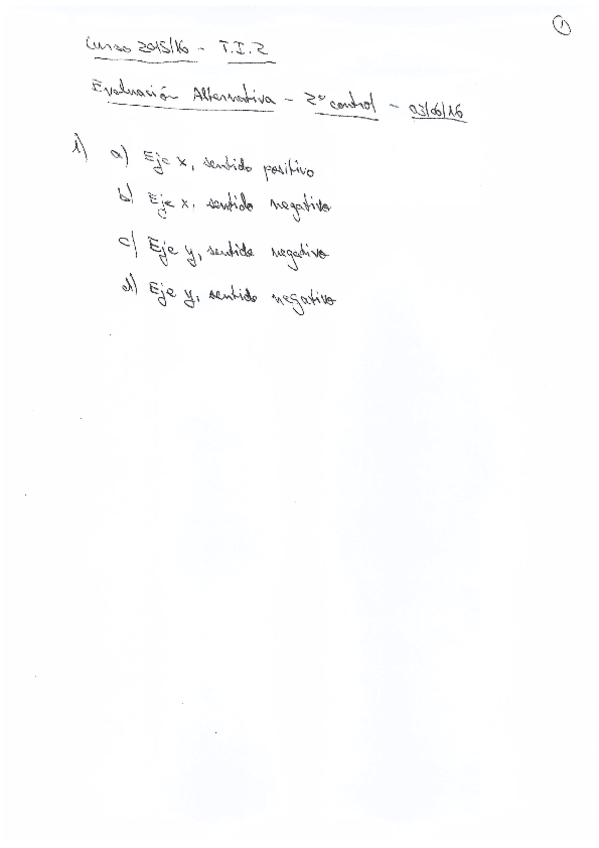 ①
Curso 2015/16 - T.I.2
Evaluación Alternativa - 2º control - 03/06/16
1) a) Eje x, sentido positivo
b) Eje x, sentido negativo
c) Eje y, sentido negativo
d) Eje y, sentido negativo